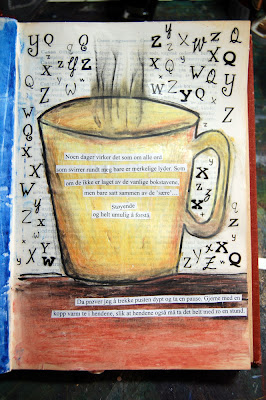 Noen dager virker det som om alle ord
som svirrer rundt meg bare er merkelige lyder. Som
om de ikke er laget av de vanlige bokstavene,
men bare satt sammen av de "sære"....
Støyende
og helt umulig å forstå.
Da prøver jeg å trekke pusten dypt og ta en pause. Gjerne med en
kopp varm te i hendene, slik at hendene også må ta det helt med ro en stund.